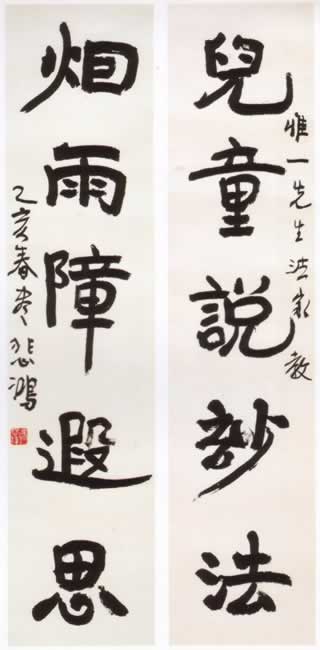 惟一先生法家教
兒童說玅法
烟雨障遐思
乙亥春 悲鴻